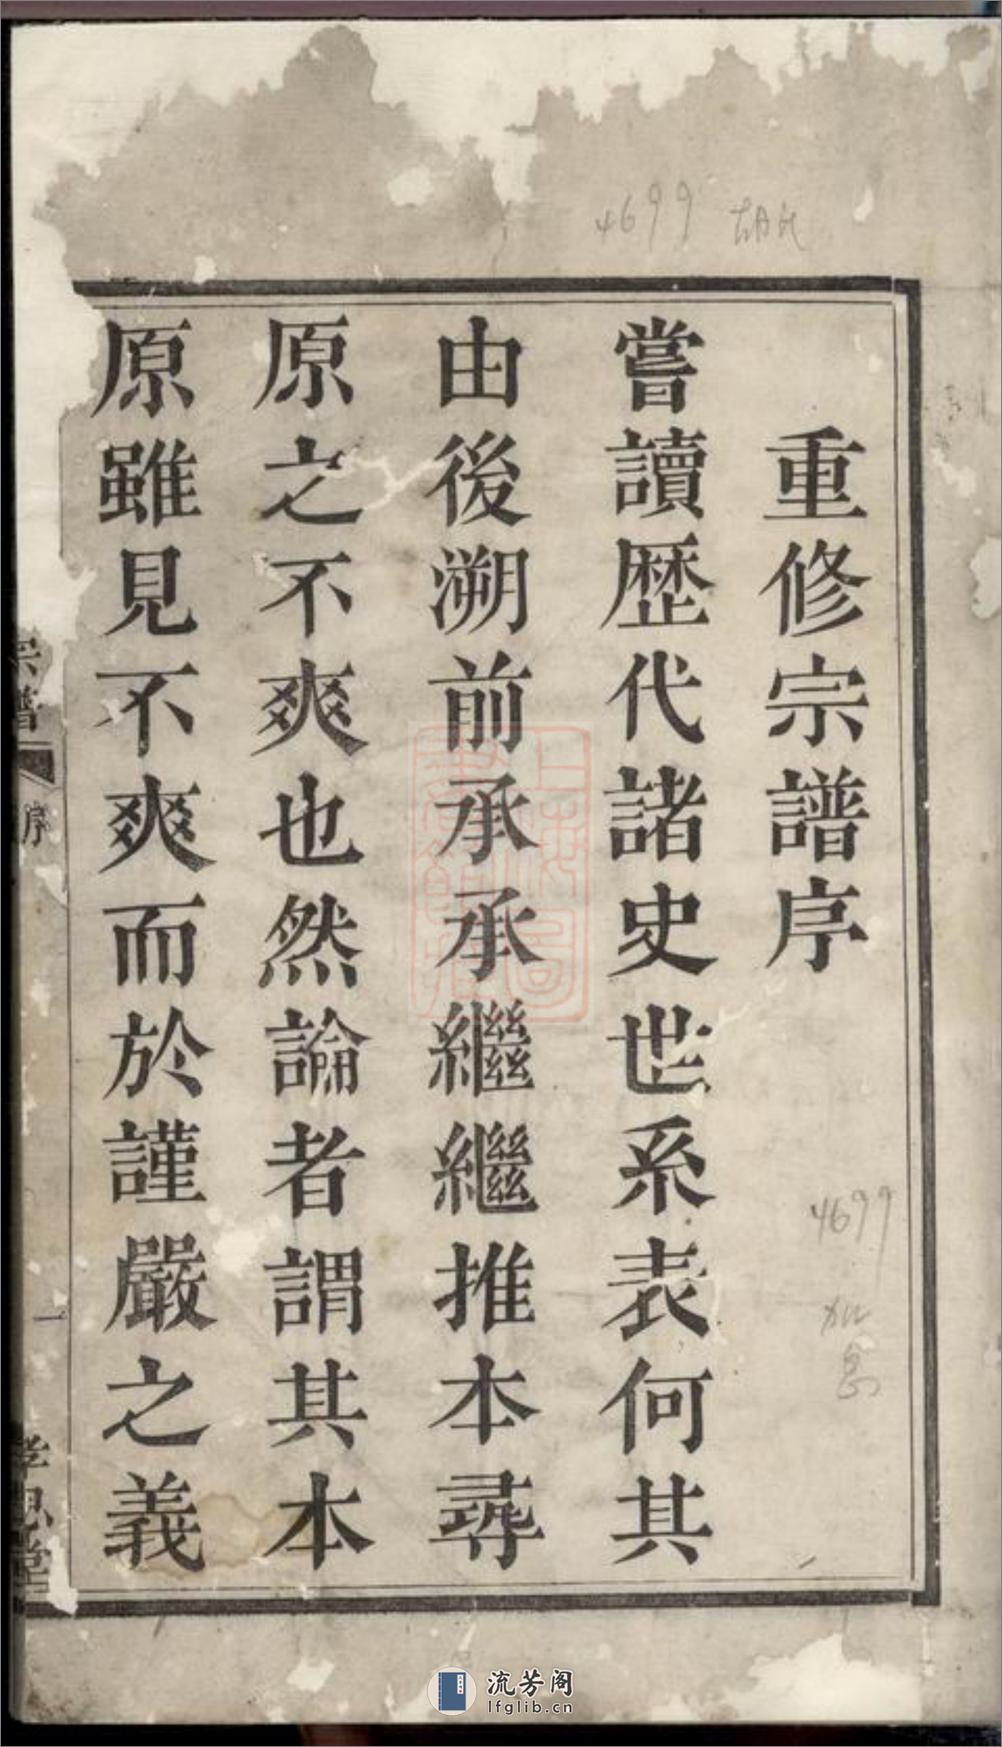 4699 胡氏
重修宗譜序
嘗讀歷代諸史世系表何其
由後溯前承承繼繼推本尋
原之不爽也然論者謂其本
原雖見不爽而於謹嚴之義
宗譜
序
一
孝思堂
4699
上海圖書館藏
流芳阁
lfglib.cn